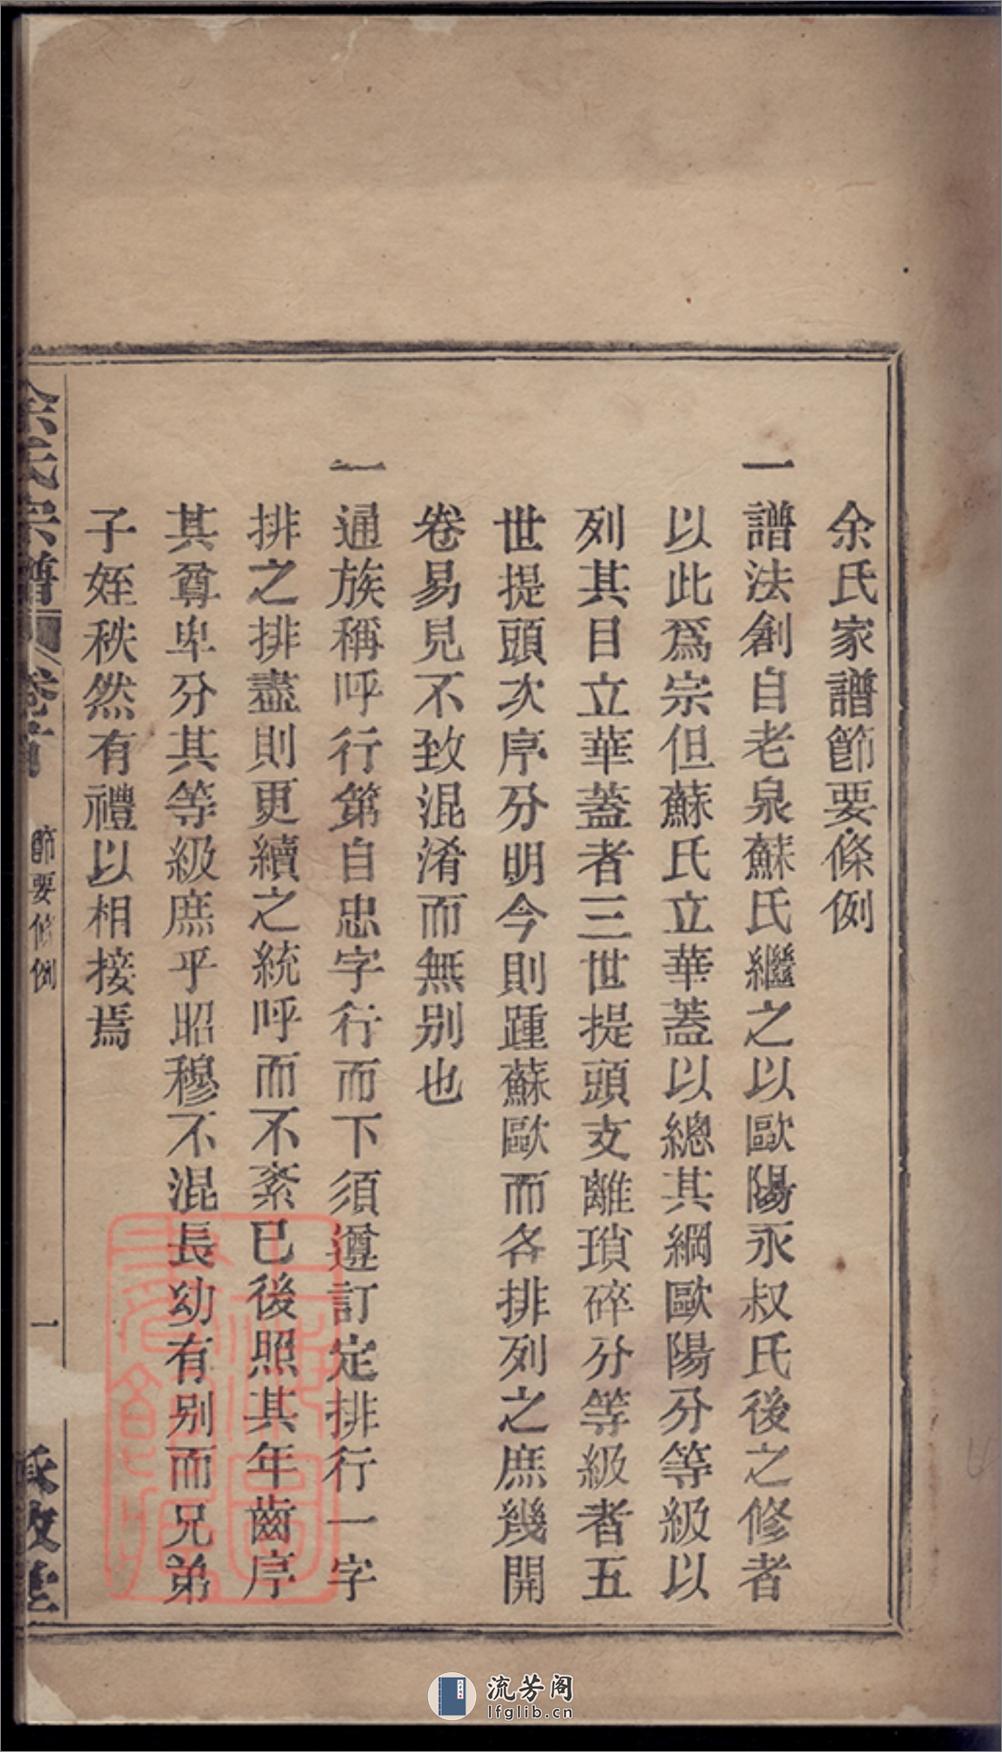 余氏家譜節要條例
一譜法創自老泉蘇氏繼之以歐陽永叔氏後之修者
以此爲宗但蘇氏立華蓋以總其綱歐陽分等級以
列其目立華蓋者三世提頭支離瑣碎分等級者五
世提頭次序分明今則踵蘇歐而各排列之庶幾開
卷易見不致混淆而無別也
一通族稱呼行第自忠字行而下須遵訂定排行一字
排之排盡則更續之統呼而不紊已後照其年齒序
其尊卑分其等級庶乎昭穆不混長幼有別而兄弟
子姪秩然有禮以相接焉
余氏宗譜 卷首 節要條例 一
流芳阁
lfglib.cn